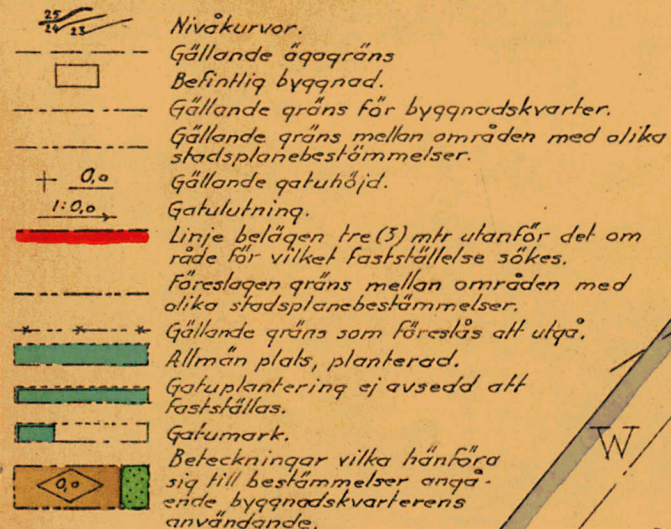 25
24 23 Nivåkurvor.
Gällande ägogräns
Befintlig byggnad.
Gällande gräns för byggnadskvarter.
Gällande gräns mellan områden med olika
stadsplanebestämmelser.
+ 0,0 Gällande gatuhöjd.
1:0,0 Gatulutning.
Linje belägen tre (3) mtr utanför det om
råde för vilket fastställelse sökes.
Föreslagen gräns mellan områden med
olika stadsplanebestämmelser.
Gällande gräns som föreslås att utgå.
Allmän plats, planterad.
Gatuplantering ej avsedd att
fastställas.
Gatumark.
Beteckningar vilka hänföra
0,0 sig till bestämmelser angå-
ende byggnadskvarterens
användande.
W